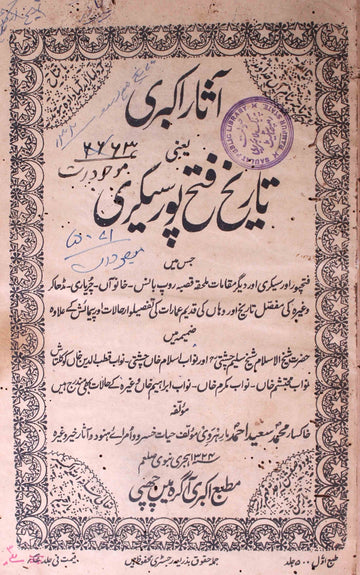 آثار اکبری
یعنی
تاریخ فتح پور سیکری
جس میں
فتحپور اور سیکری اور دیگر مقامات ملحقہ قصبہ روپ باس - خانوآں - چڑیاری - ڈھاکر
وغیرہ کی مفصل تاریخ اور وہاں کی قدیم عمارات کی تفصیل اور حالات اور پیمائش کے علاوہ
ضمیمہ میں
حضرت شیخ الاسلام شیخ سلیم چشتیؒ اور نواب اسلام خاں چشتی - نواب قطب الدین خاں کوکلتاش
نواب محتشم خاں - نواب مکرم خاں - نواب ابراہیم خاں وغیرہ کے حالات بھی مندرج ہیں
مؤلفہ
خاکسار محمد سعید احمد مارہروی مؤلف حیات خسرو و امرائے ہنود و آثار خیر وغیرہ
۱۳۲۴ ہجری نبوی صلعم
مطبع اکبری آگرہ میں چھپی
طبع اوّل ۵۰۰ جلد
جملہ حقوق بذریعہ رجسٹری محفوظ ہیں
قیمت فی جلد
۷۶۶۳
موجودرت